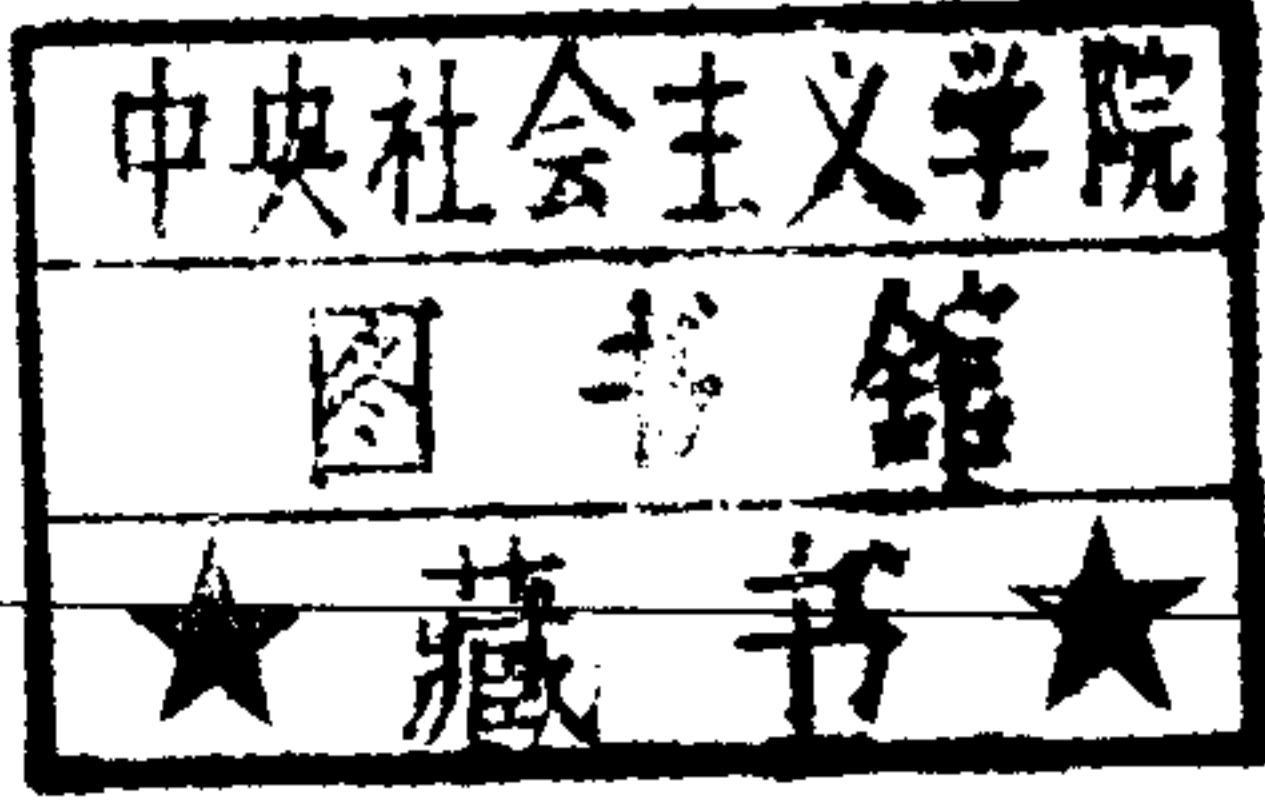 中央社会主义学院
图书館
★藏书★